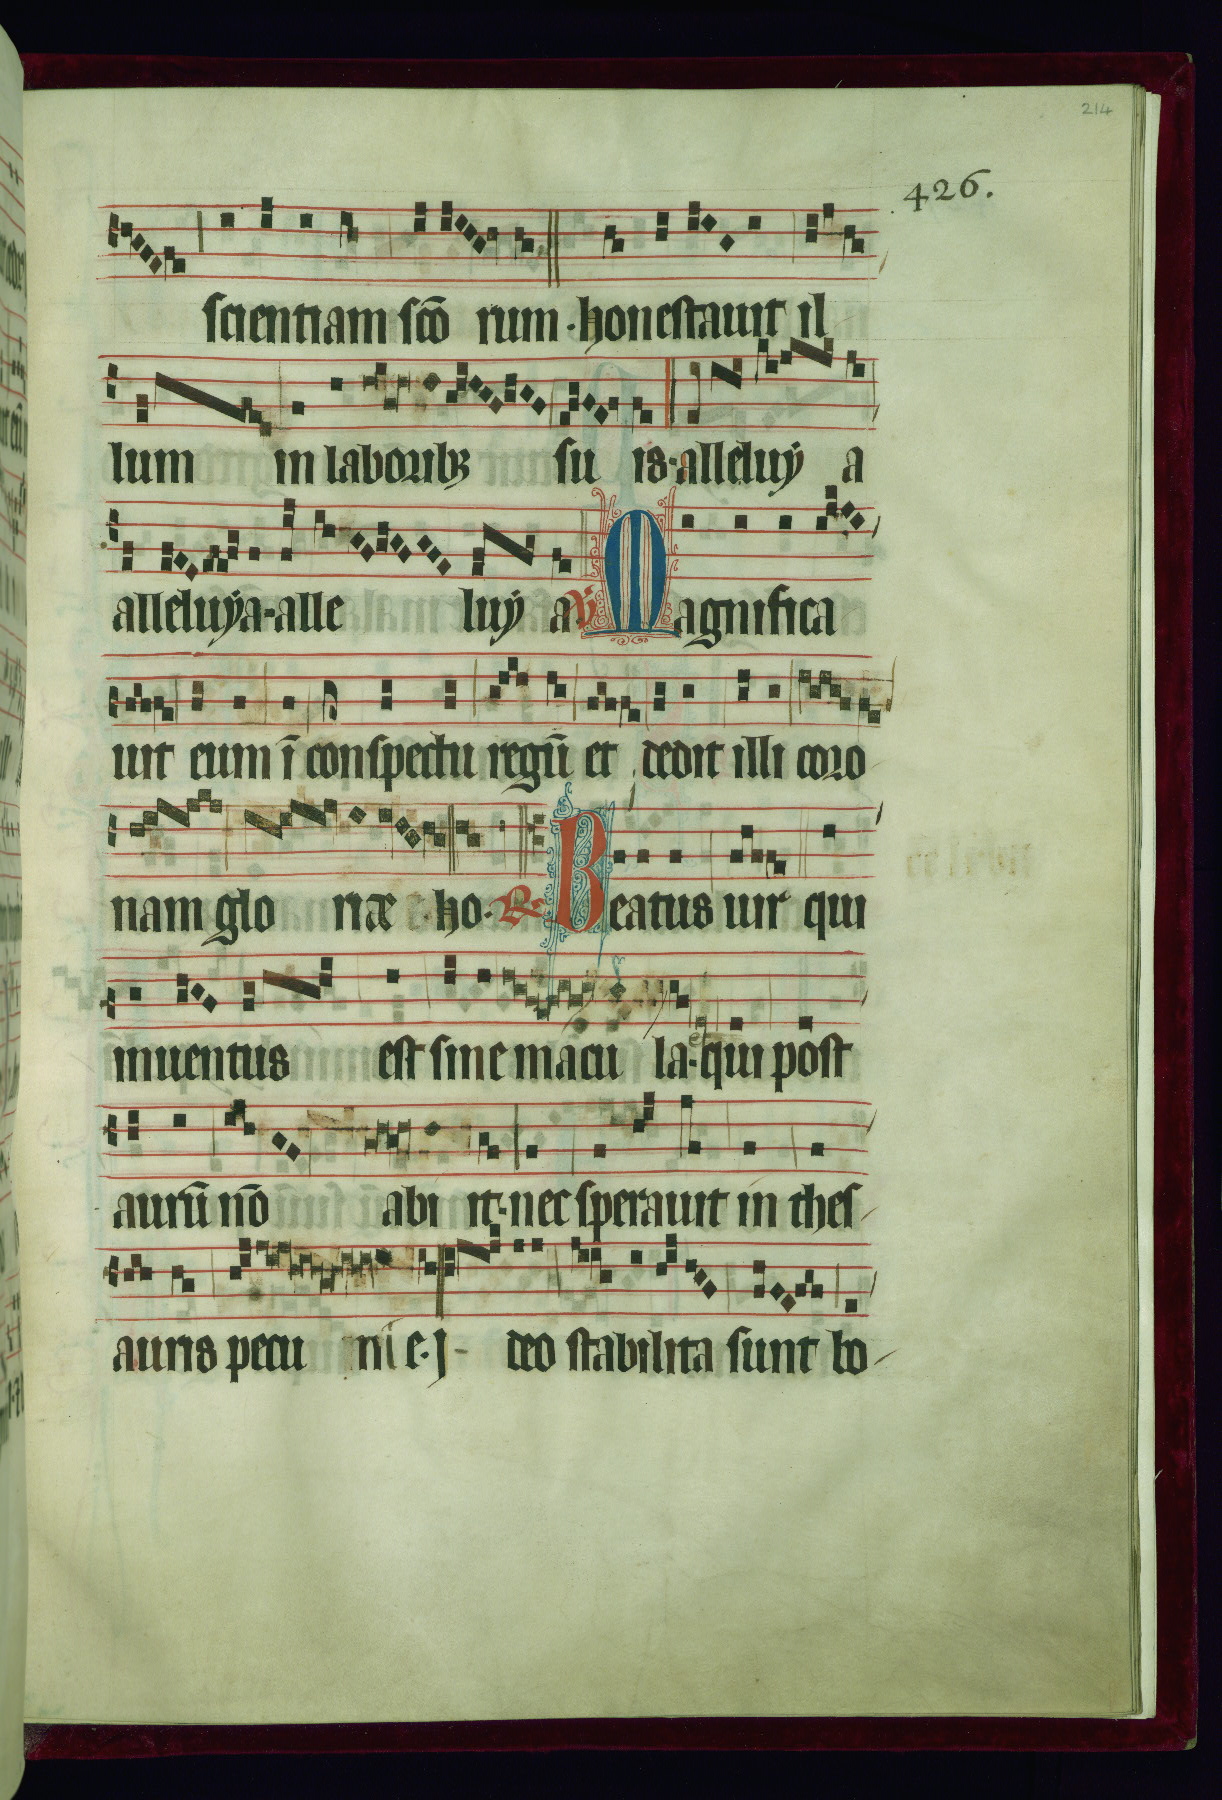 214
426.
scientiam scō rum · honestauit il
lum in laboribꝫ su is · alleluÿ a
alleluÿa · alle luÿ a ℣ Magnifica
uit eum ī conspectu regū et dedit illi coro
nam glo riæ · ho · ℞ Beatus uir qui
inuentus est sine macu la · qui post
aurū nō abi it · nec sperauit in thes
auris pecu ni e · J deo stabilita sunt bo